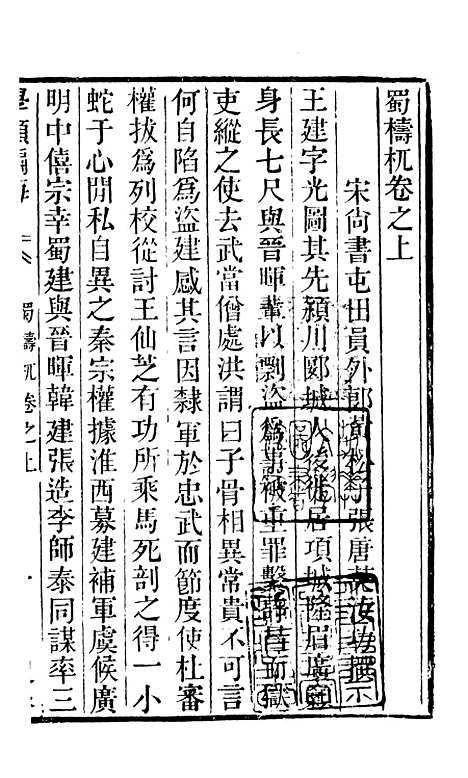 蜀檮杌卷之上
宋尙書屯田員外郎 張唐英汝功撰
王建字光圖其先潁川郾城人後徙居項城隆眉廣顙
身長七尺與晉暉輩以剽盜爲事被重罪繫許昌而獄
吏縱之使去武當僧處洪謂曰子骨相異常貴不可言
何自陷爲盜建感其言因隸軍於忠武而節度使杜審
權拔爲列校從討王仙芝有功所乘馬死剖之得一小
蛇于心閒私自異之秦宗權據淮西募建補軍虞候廣
明中僖宗幸蜀建與晉暉韓建張造李師泰同謀率三
學類編 蜀檮杌卷之上 一